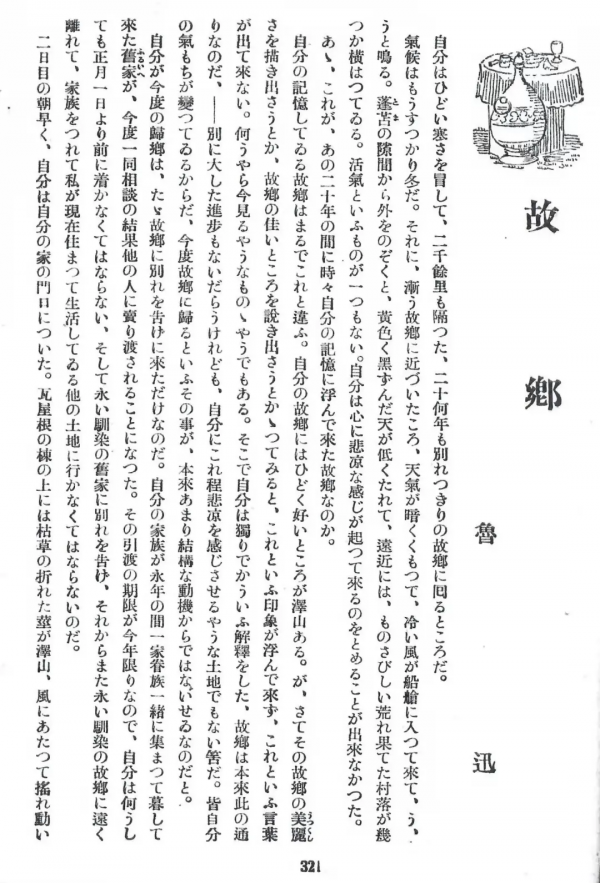 故鄉
魯迅
自分はひどい寒さを冒して、二千餘里も隔つた、二十何年も別れつきりの故鄉に囘るところだ。
氣候はもうすつかり冬だ。それに、漸う故鄉に近づいたころ、天氣が暗くくもつて、冷い風が船艙に入つて來て、う、
うと鳴る。蓬苫の隙間から外をのぞくと、黄色く黑ずんだ天が低くたれて、遠近には、ものさびしい荒れ果てた村落が幾
つか橫はつてゐる。活氣といふものが一つもない。自分は心に悲凉な感じが起つて來るのをとめることが出來なかつた。
あゝ、これが、あの二十年の間に時々自分の記憶に浮んで來た故鄉なのか。
自分の記憶してゐる故鄉はまるでこれと違ふ。自分の故鄉にはひどく好いところが澤山ある。が、さてその故鄉の美麗
さを描き出さうとか、故鄉の佳いところを說き出さうとかゝつてみると、これといふ印象が浮んで來ず、これといふ言葉
が出て來ない。何うやら今見るやうなものゝやうでもある。そこで自分は獨りでかういふ解釋をした、故鄉は本來此の通
りなのだ、——別に大した進步もないだらうけれども、自分にこれ程悲凉を感じさせるやうな土地でもない筈だ。皆自分
の氣もちが變つてゐるからだ、今度故鄉に歸るといふその事が、本來あまり結構な動機からではないせゐなのだと。
自分が今度の歸鄉は、たゞ故鄉に別れを告けに來ただけなのだ。自分の家族が永年の間一家眷族一緖に集まつて暮して
來た舊家が、今度一同相談の結果他の人に賣り渡されることになつた。その引渡の期限が今年限りなので、自分は何うし
ても正月一日より前に着かなくてはならない、そして永い馴染の舊家に別れを告げ、それからまた永い馴染の故鄉に遠く
離れて、家族をつれて私が現在住まつて生活してゐる他の土地に行かなくてはならないのだ。
二日目の朝早く、自分は自分の家の門口についた。瓦屋根の棟の上には枯草の折れた莖が澤山、風にあたつて搖れ動い
321